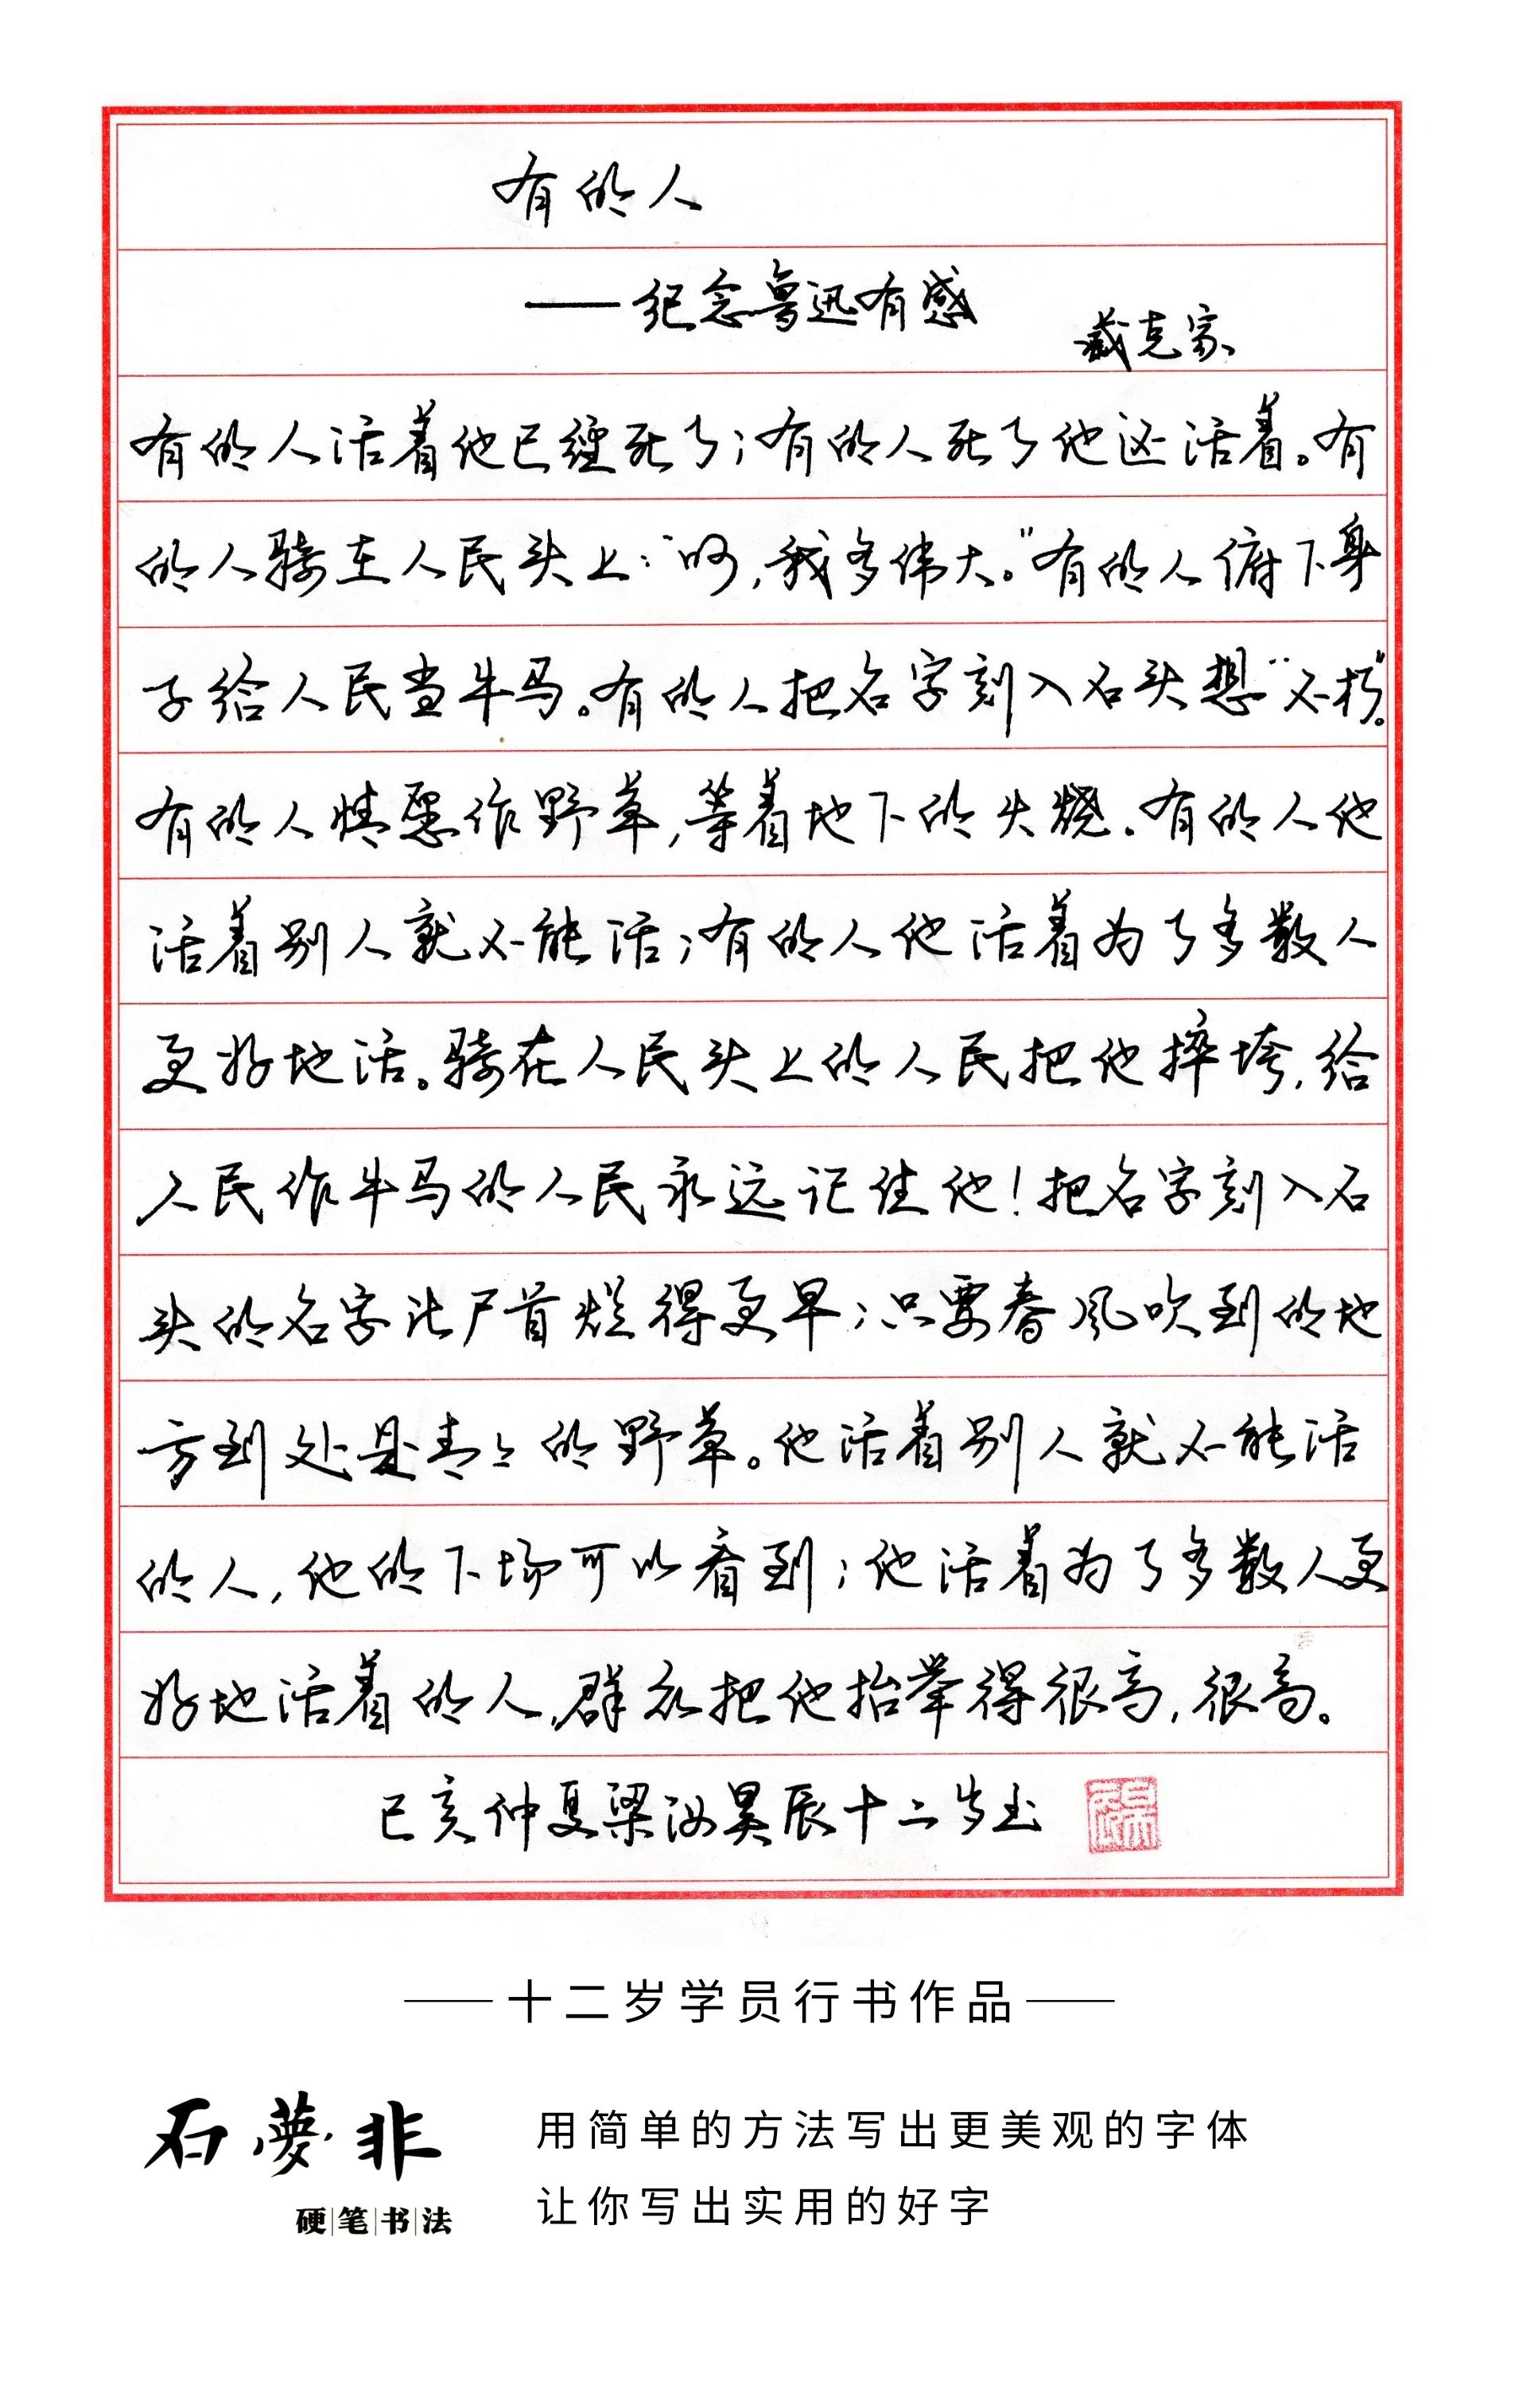 有的人
——纪念鲁迅有感
臧克家
有的人活着他已经死了；有的人死了他还活着。有
的人骑在人民头上：“呵，我多伟大。”有的人俯下身
子给人民当牛马。有的人把名字刻入石头想“不朽”。
有的人情愿作野草，等着地下的火烧。有的人他
活着别人就不能活；有的人他活着为了多数人
更好地活。骑在人民头上的人民把他摔垮，给
人民作牛马的人民永远记住他！把名字刻入石
头的名字比尸首烂得更早；只要春风吹到的地
方到处是青々的野草。他活着别人就不能活
的人，他的下场可以看到；他活着为了多数人更
好地活着的人，群众把他抬举得很高，很高。
己亥仲夏梁汝昊辰十二岁书
——十二岁学员行书作品——
石夢非
硬|笔|书|法
用简单的方法写出更美观的字体
让你写出实用的好字